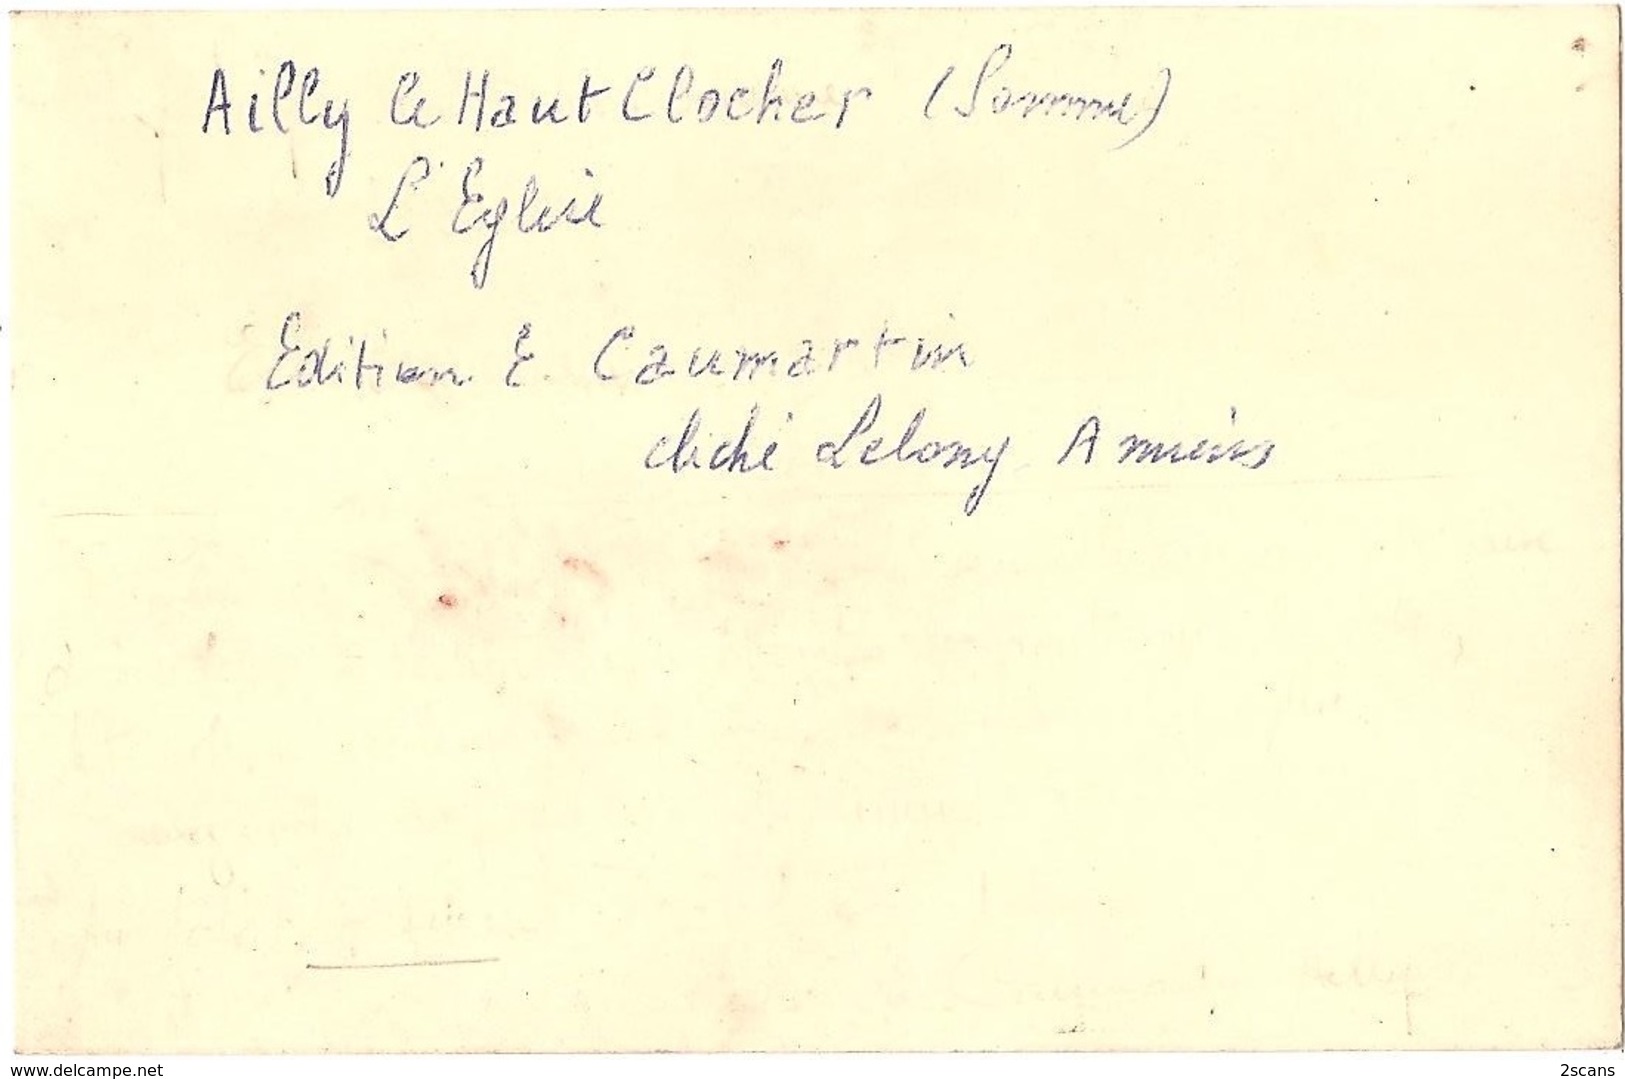 Ailly le Haut Clocher (Somme)
L'Eglise
Edition E. Caumartin
cliché Lelong Amiens
www.delcampe.net
2scans